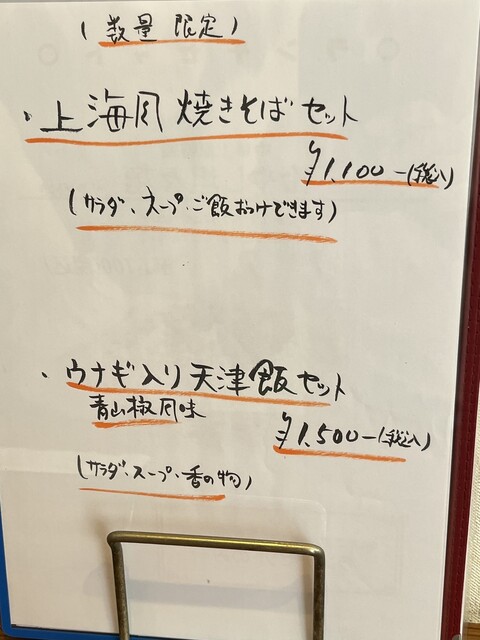 (数量 限定)
・上海風 焼きそば セット
¥1,100-(税込)
(サラダ、スープ・ご飯おつけできます)
・ウナギ入り 天津飯 セット
青山椒風味
¥1,500-(税込)
(サラダ・スープ・香の物)